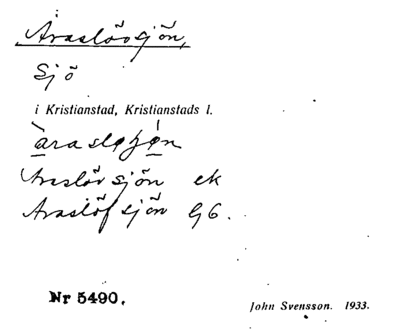 Araslövsjön,
Sjö
i Kristianstad, Kristianstads l.
Araslövsjön ek
Araslöfsjön G6.
Nr 5490.
John Svensson. 1933.